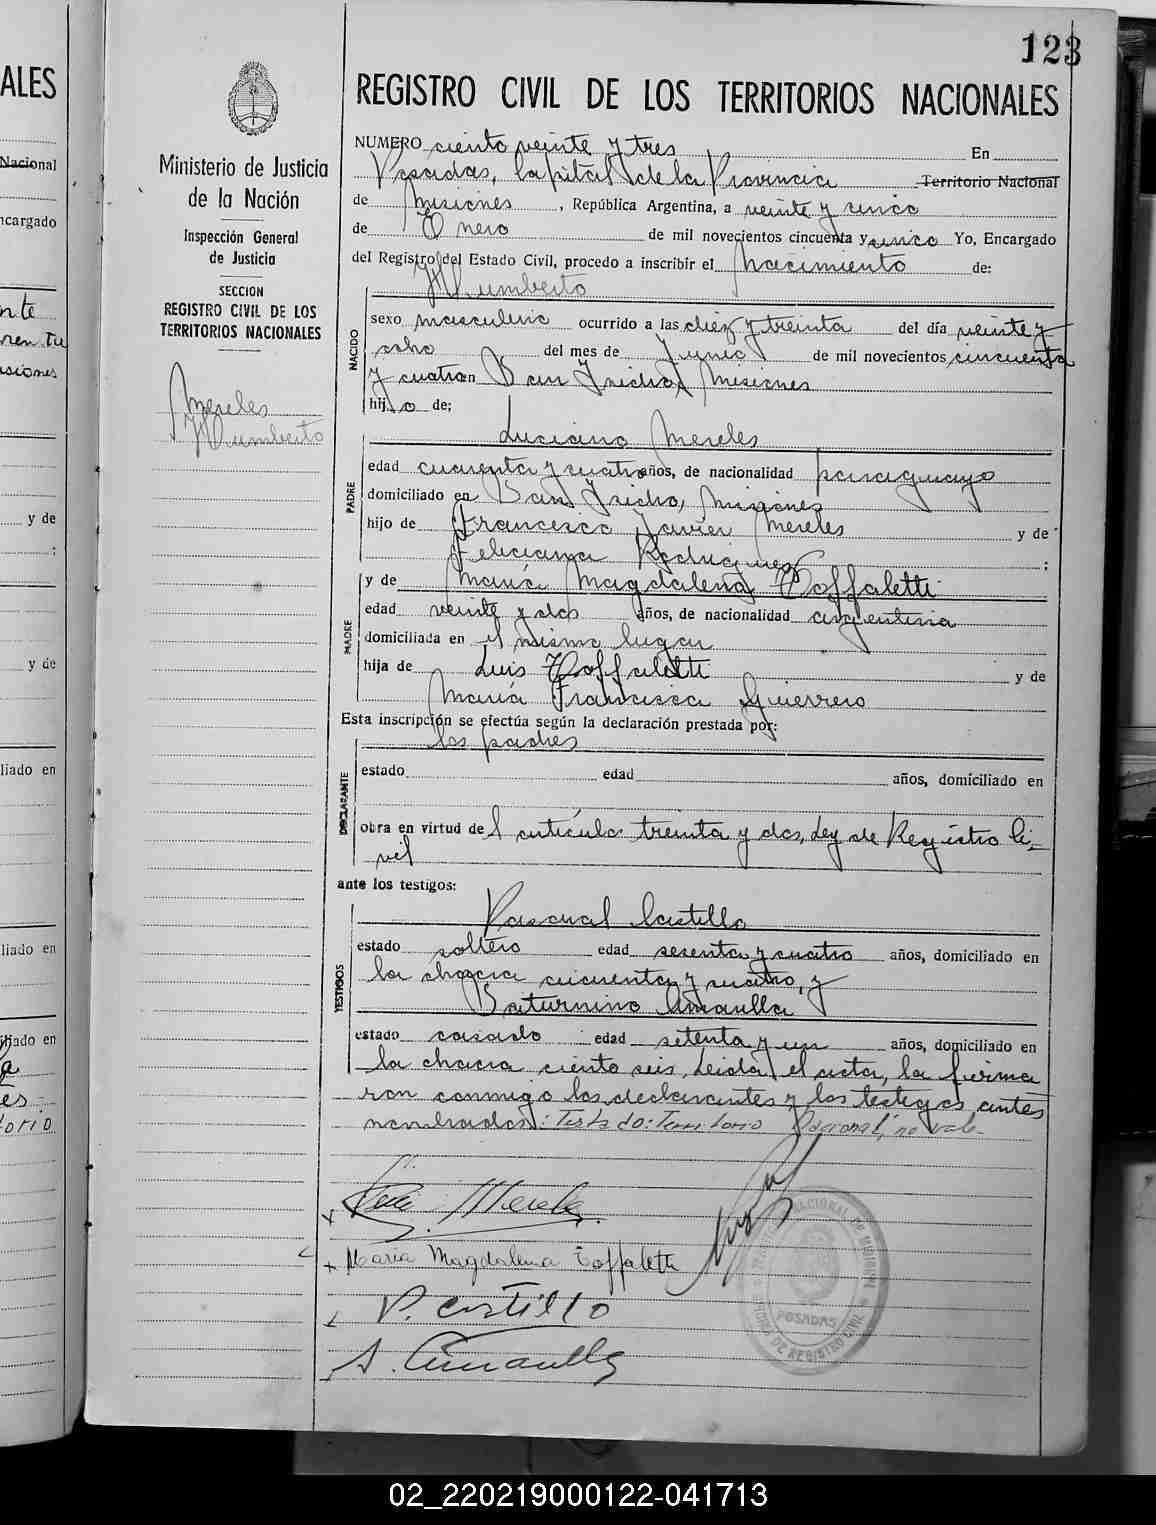 123
REGISTRO CIVIL DE LOS TERRITORIOS NACIONALES
Ministerio de Justicia
de la Nación
Inspección General
de Justicia
SECCION
REGISTRO CIVIL DE LOS
TERRITORIOS NACIONALES
Mereles
Humberto
NUMERO ciento veinte y tres En
Posadas, Capital de la Provincia Territorio Nacional
de Misiones, República Argentina, a veinte y cinco
de Enero de mil novecientos cincuenta y cinco Yo, Encargado
del Registro del Estado Civil, procedo a inscribir el nacimiento de:
Humberto
NACIDO
sexo masculino ocurrido a las diez y treinta del día veinte y
ocho del mes de Junio de mil novecientos cincuenta
y cuatro en San Isidro, Misiones
hijo de;
Luciano Mereles
PADRE
edad cuarenta y cuatro años, de nacionalidad paraguayo
domiciliado en San Isidro, Misiones
hijo de Francisco Javier Mereles y de
Feliciana Rodriguez;
y de María Magdalena Toffaletti
MADRE
edad veinte y dos años, de nacionalidad argentina
domiciliada en el mismo lugar
hija de Luis Toffaletti y de
María Francisca Guierrero
Esta inscripción se efectúa según la declaración prestada por:
los padres
DECLARANTE
estado edad años, domiciliado en
obra en virtud del artículo treinta y dos, Ley de Registro Ci-
vil
ante los testigos:
Pascual Castillo
TESTIGOS
estado soltero edad sesenta y cuatro años, domiciliado en
la chacra cuarenta y cuatro, y
Saturnino Amarilla
estado casado edad setenta y un años, domiciliado en
la chacra ciento seis. Leída el acta, la firma
ron conmigo los declarantes y los testigos antes
nombrados: Testado: Territorio Nacional, no vale-
Mereles
Maria Magdalena Toffaletti
P. Castillo
S. Amarilla
POSADAS
ALES
Nacional
ncargado
y de
y de
liado en
liado en
iliado en
02_220219000122-041713